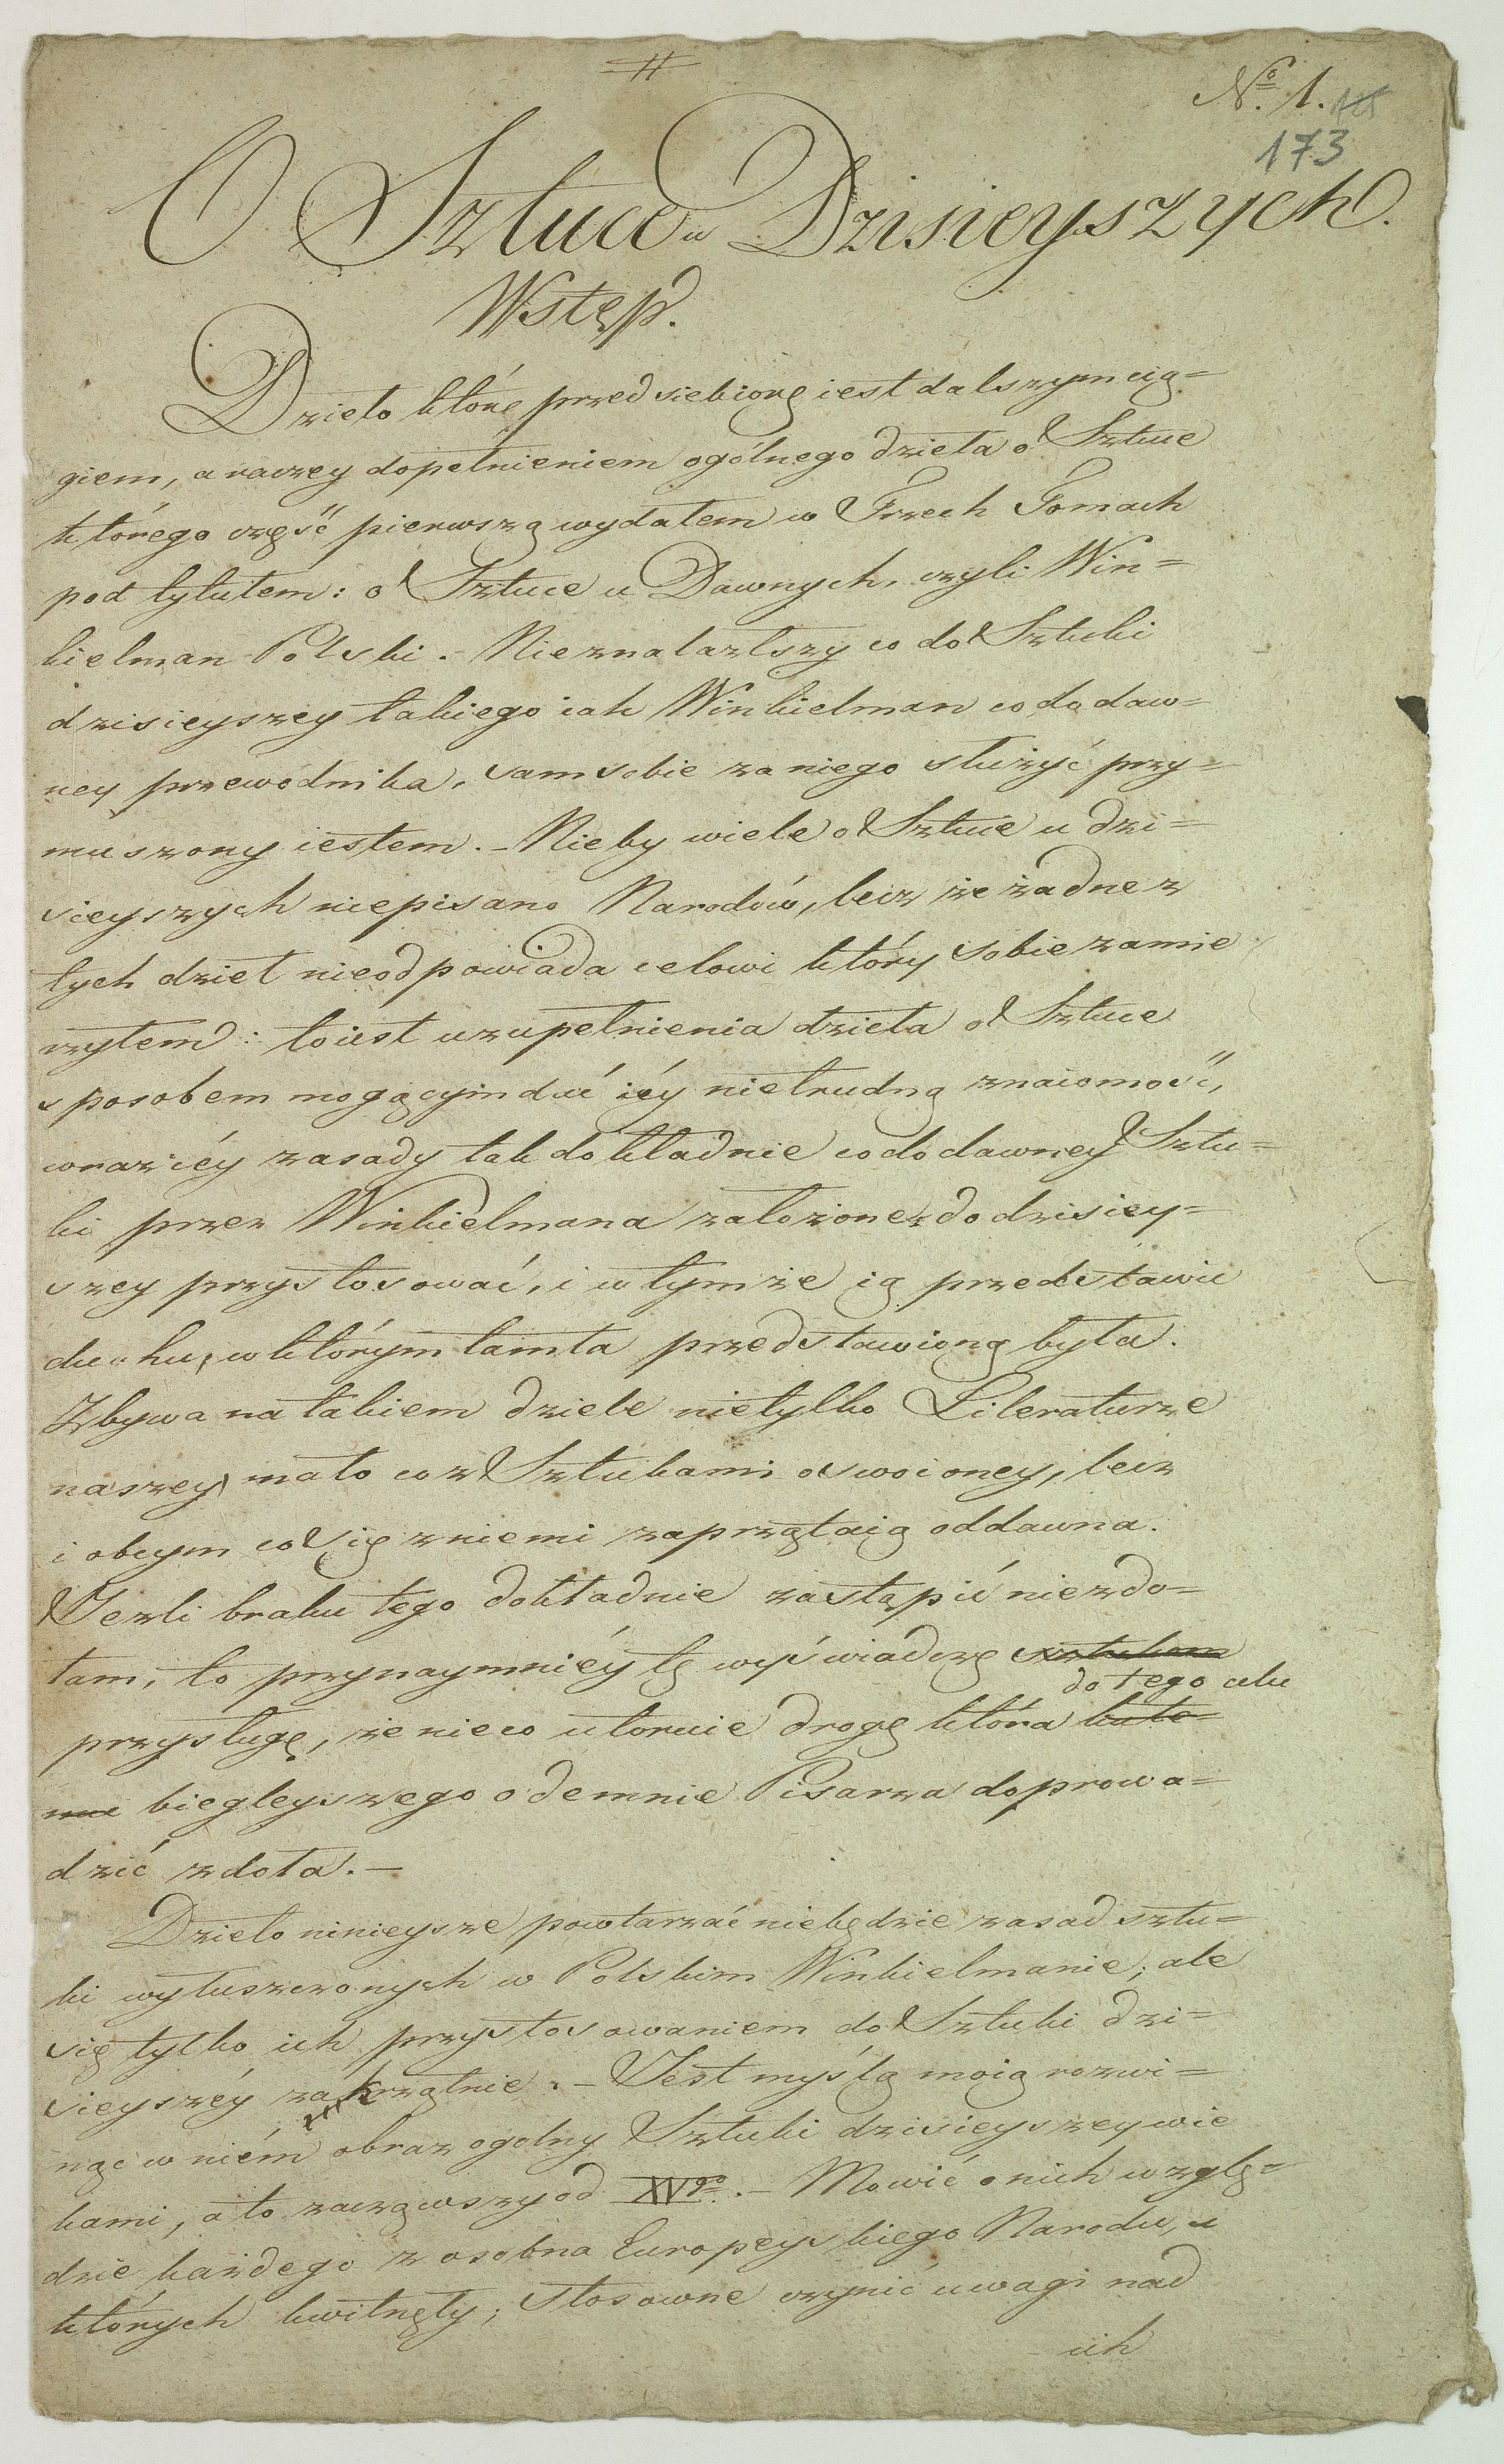 Nº. 1.
173
O Sztuce u Dzisieyszych.
Wstęp.
Dzieło które przedsiebiorę iest dalszym cią=
giem, a raczey dopełnieniem ogólnego dzieła o Sztuce
którego część pierwszą wydałem w Trzech Tomach
pod tytułem: o Sztuce u Dawnych, czyli Win=
kielman Polski. - Nieznalazłszy co do Sztuki
dzisieyszey takiego iak Winkielman co do daw=
ney przewodnika, sam sobie za niego służyć przy=
muszony iestem. - Nie by wiele o Sztuce u dzi=
sieyszych niepisano Narodów, lecz że żadne z
tych dzieł nieodpowiada celowi który sobie zamie
rzyłem: to iest uzupełnienia dzieła o Sztuce
sposobem mogącym dać iéy nietrudną znaiomość,
wraz iéy zasady tak dokładnie co do dawney Sztu=
ki przez Winkielmana założone do dzisiey=
szey przystosować, i w tymże ią przedstawić
duchu, w którym tamta przedstawioną była.
Zbywa na takiem dziele nietylko Literaturze
naszey mało co z Sztukami oswoioney, lecz
i obcym co się z niemi zaprzątaią oddawna.
Jeżli braku tego dokładnie zastąpić niezdo=
łam, to przynaymniéy tę wyświadczę sztukom
do tego celu
przysługę, że nieco utoruie drogę która ku te=
mu biegleyszego odemnie Pisarza doprowa=
dzić zdoła. -
Dzieło ninieysze powtarzać niebędzie zasad sztu=
ki wyłuszczonych w Polskim Winkielmanie; ale
się tylko ich przystosowaniem do Sztuki dzi=
sieyszéy zakrzątnie. - Jest myślą moią rozwi=
nąc w niém obraz ogolny Sztuki dzisieyszey wie
kami, a to zacząwszy od XVgo. - Mowić o nich wzglę=
dzie każdego z osobna Europeyskiego Narodu, u
których kwitnęły; stosowne czynić uwagi nad
ich